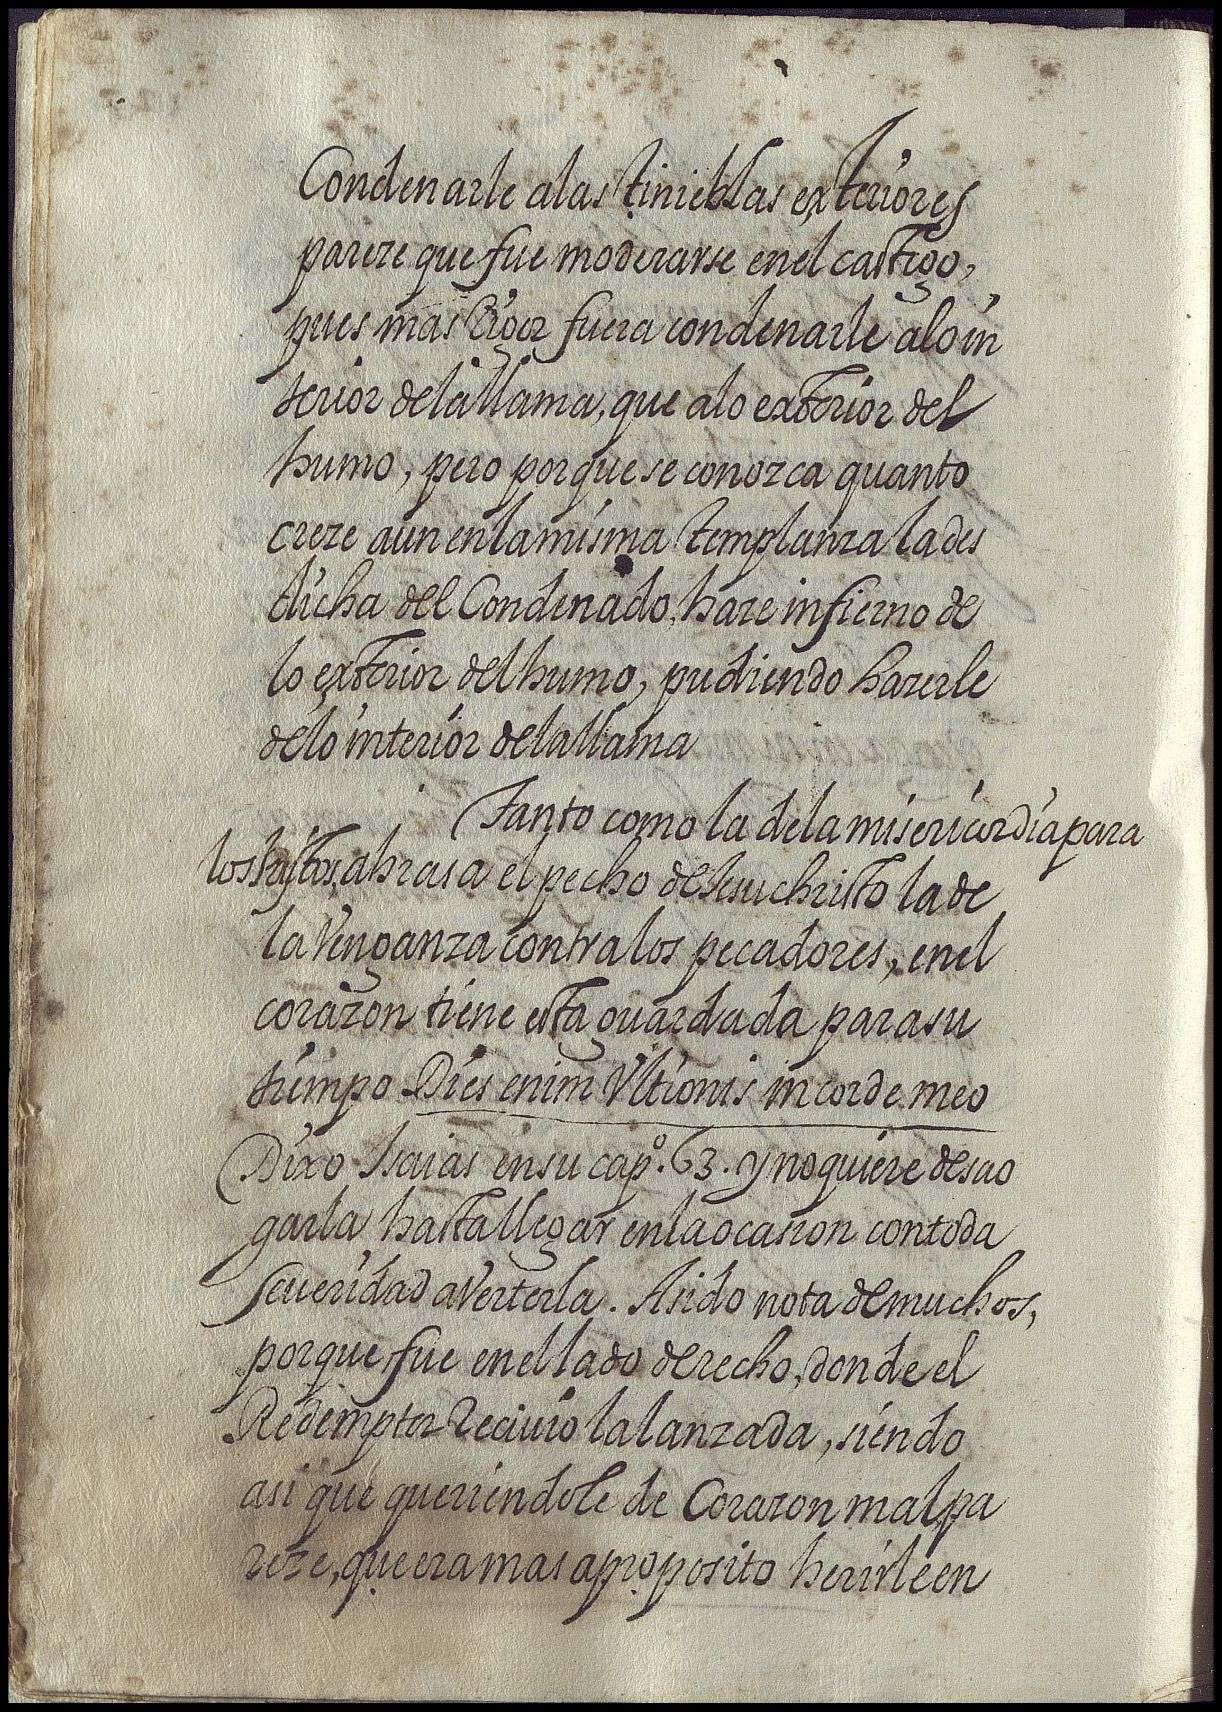 Condenarle a las tinieblas exteriores
pareze que fue moderarse en el castigo,
pues mas Rigor fuera condenarle alo in
terior dela llama, que alo exterior del
humo, pero porque se conozca quanto
creze aun en la misma templanza la des
dicha del Condenado, haze infierno de
lo exterior del humo, pudiendo hazerle
delo interior dela llama
Tanto como la dela misericordia para
los justos, abrasa el pecho de Jesuchristo la de
la Venganza contra los pecadores, en el
corazon tiene esta guardada para su
tiempo Dies enim Vltionis in corde meo
Dixo Isaias en su capº. 63. y no quiere desao
garla hasta llegar en la ocasion con toda
seueridad a Verterla. A sido nota de muchos,
porque fue en el lado derecho, donde el
Redemptor Reciuio la lanzada, siendo
asi que queriendole de Corazon mal, pa
reze, que era mas a proposito herirle en